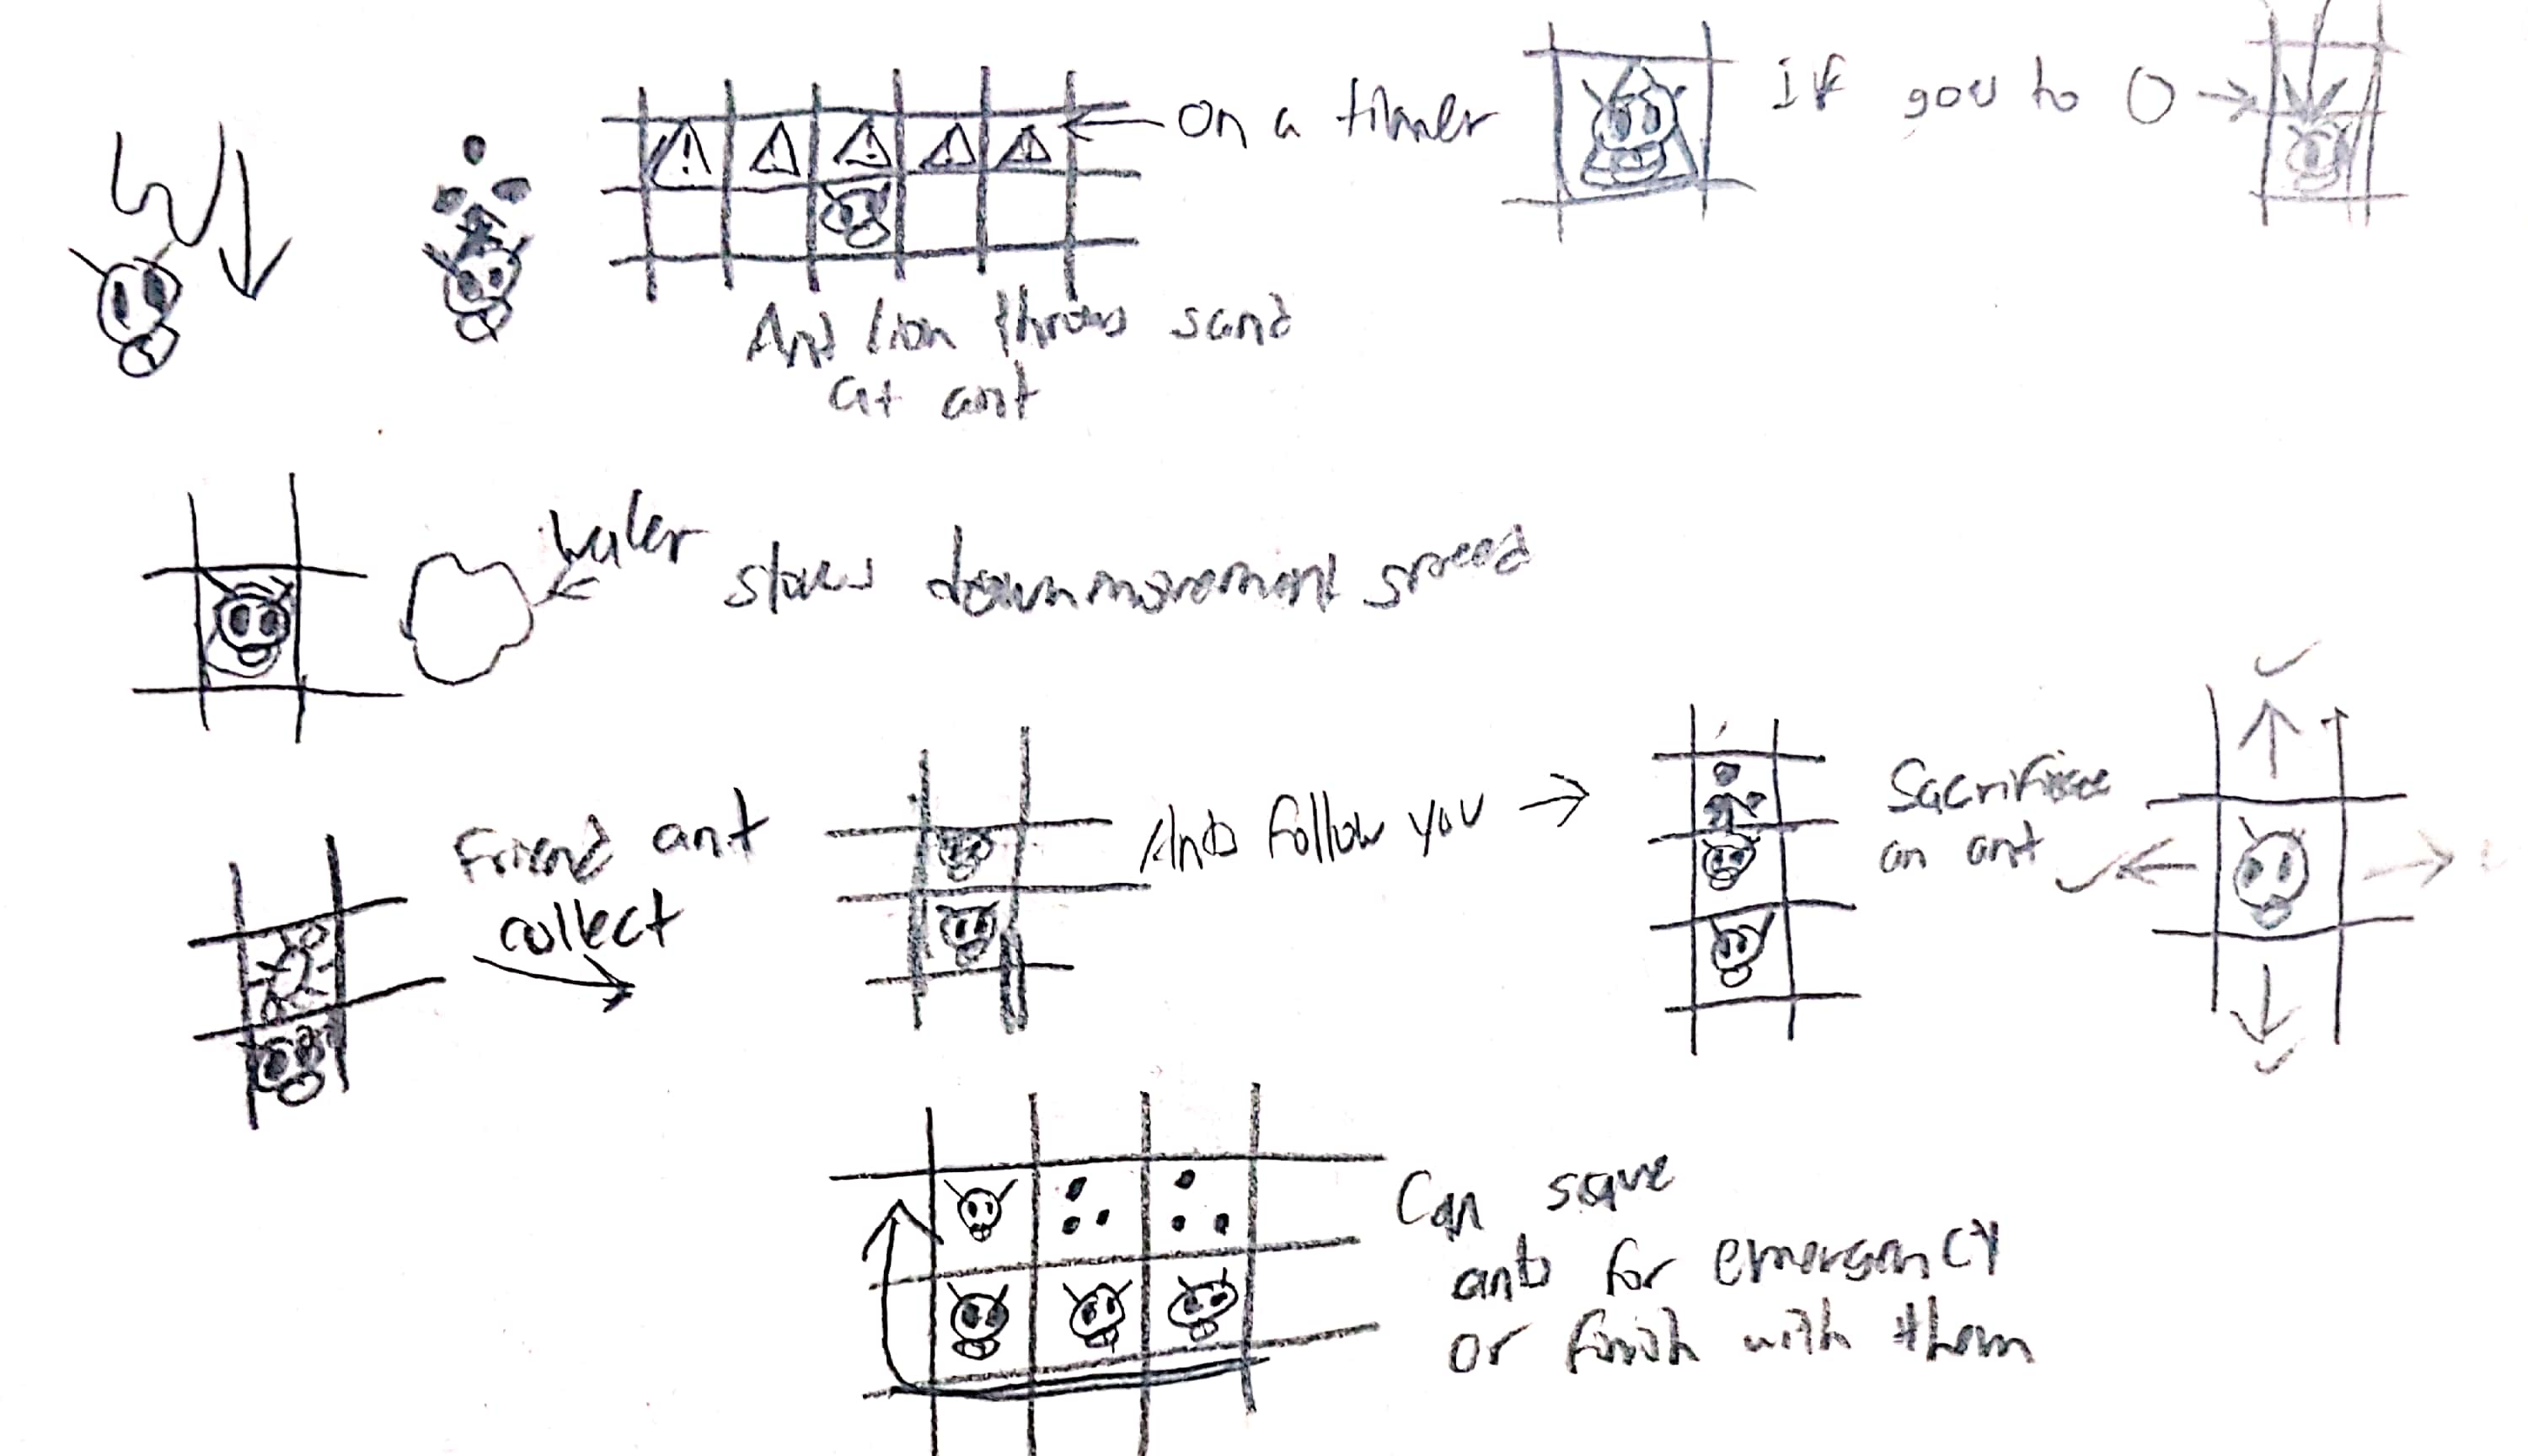 On a timer
If you to 0
Ant lion throws sand
at ant
water
slows down movement speed
Friend ant
collect
Ants follow you
Sacrifice
an ant
Can save
ants for emergency
or finish with them